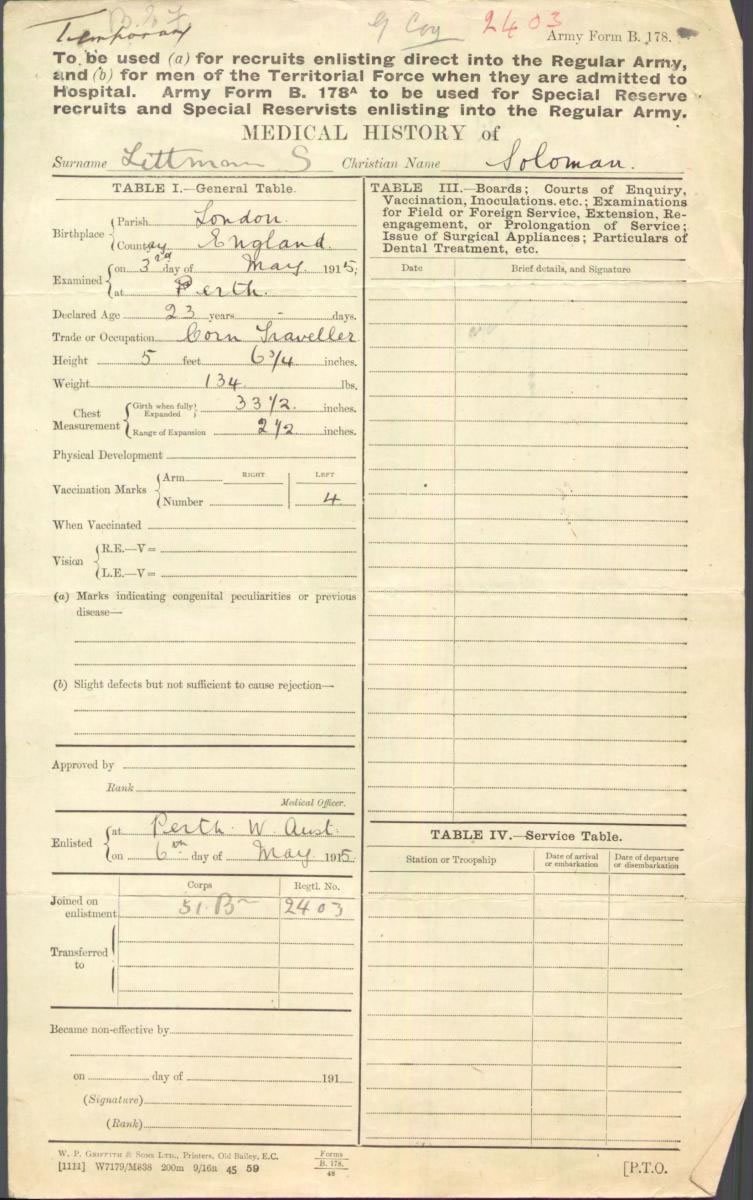 Temporary
G Coy 2403
Army Form B. 178.
To be used (a) for recruits enlisting direct into the Regular Army,
and (b) for men of the Territorial Force when they are admitted to
Hospital. Army Form B. 178A to be used for Special Reserve
recruits and Special Reservists enlisting into the Regular Army.
MEDICAL HISTORY of
Surname Littmann S Christian Name Soloman.
TABLE I.—General Table.
Birthplace
Parish London.
County England.
Examined
on 3rd day of May 1915;
at Perth.
Declared Age 23 years - days.
Trade or Occupation Corn Traveller
Height 5 feet 6 3/4 inches.
Weight 134 lbs.
Chest Measurement
Girth when fully Expanded 33 1/2 inches.
Range of Expansion 2 1/2 inches.
Physical Development
Vaccination Marks
RIGHT LEFT
Arm
Number 4
When Vaccinated
Vision
R.E.—V=
L.E.—V=
(a) Marks indicating congenital peculiarities or previous
disease—
(b) Slight defects but not sufficient to cause rejection—
Approved by
Rank
Medical Officer.
Enlisted
at Perth. W. Aust.
on 6th day of May 1915
Corps Regtl. No.
Joined on
enlistment 51. Bn 2403
Transferred
to
Became non-effective by
on day of 191
(Signature)
(Rank)
TABLE III.—Boards; Courts of Enquiry,
Vaccination, Inoculations, etc.; Examinations
for Field or Foreign Service, Extension, Re-
engagement, or Prolongation of Service;
Issue of Surgical Appliances; Particulars of
Dental Treatment, etc.
Date Brief details, and Signature
TABLE IV.—Service Table.
Station or Troopship
Date of arrival
or embarkation
Date of departure
or disembarkation
W. P. GRIFFITH & SONS LTD., Printers, Old Bailey, E.C.
[1111] W7179/M838 200m 9/16a 45 59
Forms
B. 178.
48
[P.T.O.